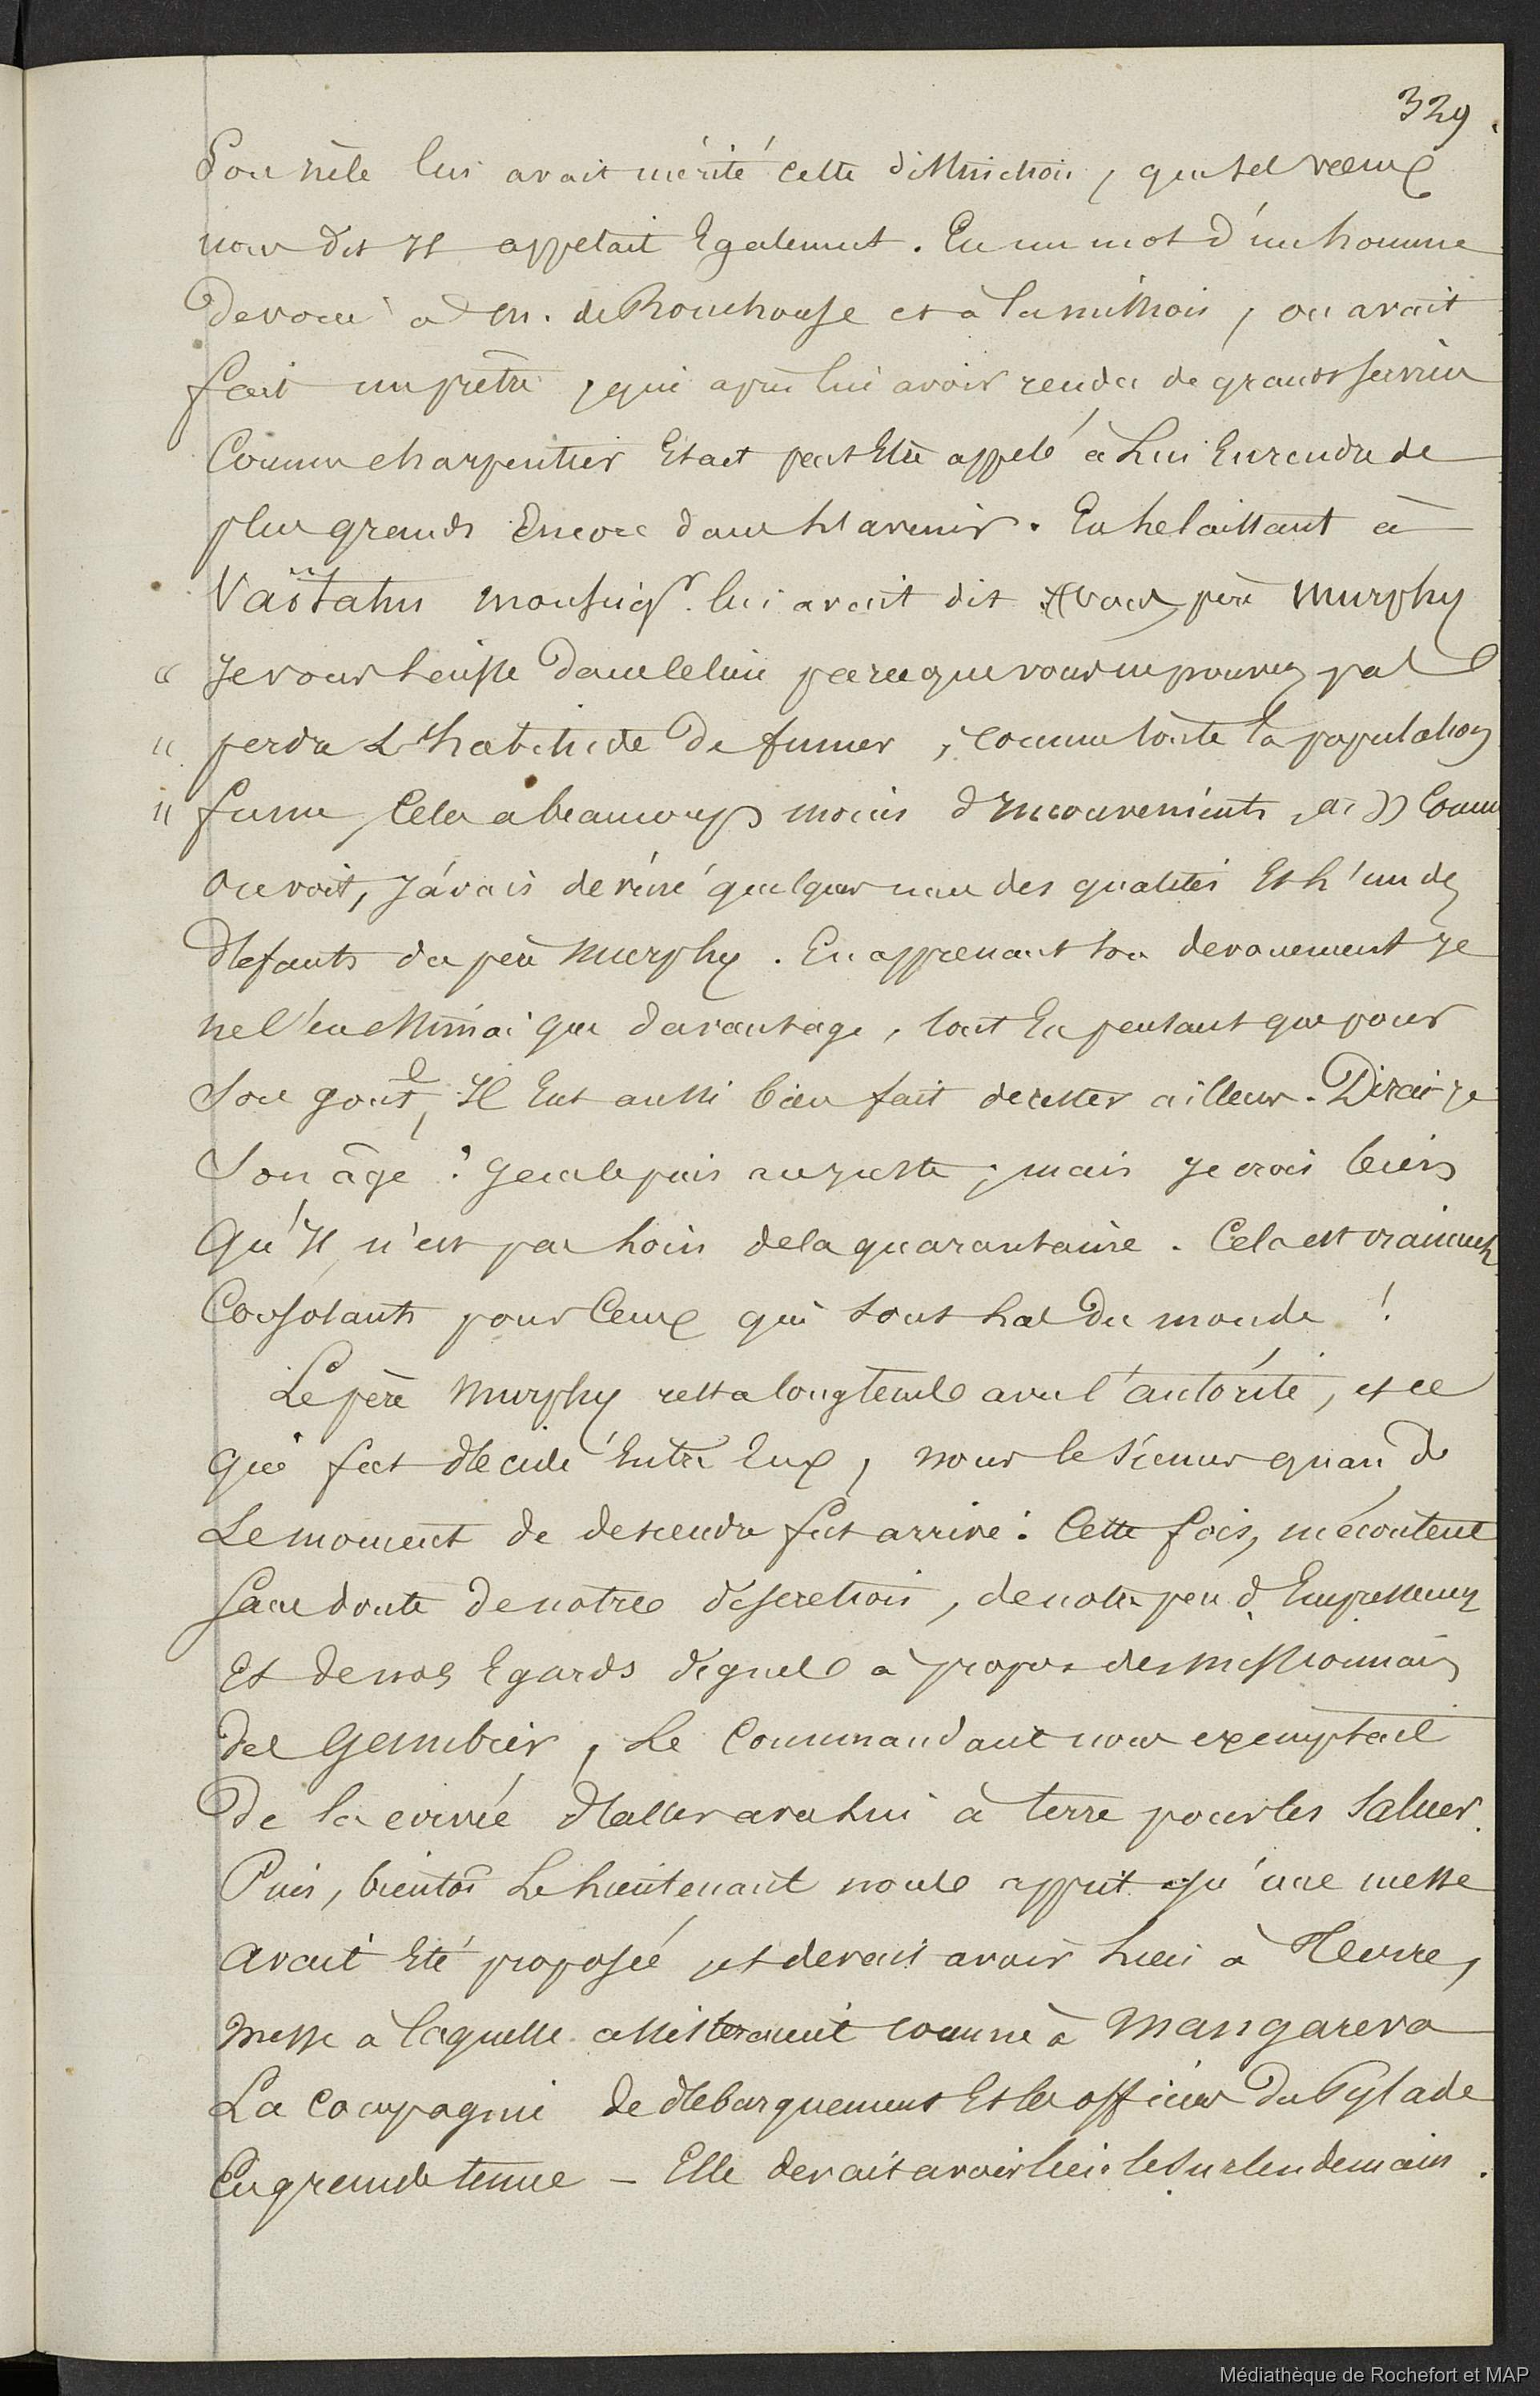 329.
Son zèle lui avait mérité cette distinction, que ses vœux
nous dit Il appelait Egalement. En un mot d'un homme
dévoué à M. de Rouchouse et à la mission, on avait
fait un prêtre, qui après lui avoir rendu de grands services
Comme charpentier Etait peut Etre appelé à Lui En rendre de
plus grands Encore dans L'avenir. En le laissant à
Vaïtahu monseigr. lui avait dit Vous, père Murphy
" Je vous Laisse dans le lieu parceque vous ne pouvez pas
" perdre L'habitude de fumer, comme toute la population
" fume, Cela a beaucoup moins d'Inconvenients, ai » Comme
on voit, J'avais déviné quelques une des qualités Et l'un des
défauts du père Murphy. En apprenant son dévouement Je
ne l'en estimai que davantage, tout En pensant que pour
Son gout, Il Eut aussi bien fait de rester ailleurs. Dirai-je
Son âge ? Je ne le puis au juste; mais Je crois bien
Qu'Il n'est pas Loin de la quarantaine. Cela est vraiment
Consolants pour Ceux qui sont Las du monde !
Le père Murphy resta longtems avec l'autorité, et ce
qui fut décidé Entre Eux, nous le sçumes quand
Le moment de descendre fut arrivé : Cette fois, mécontent
Sans doute de notre discretion, de notre peu d'Empressement
Et de nos Egards dignes à propos des missionnaires
des Gambier, Le Commandant nous exemptait
De la corvée d'aller avec Lui à terre pour les Saluer.
Puis, bientôt Le Lieutenant nous apprit qu'une messe
Avait Eté proposée et devait avoir Lieu à Terre,
Messe à laquelle assisteraient comme à Mangareva
La Compagnie de débarquement Et les officiers du Pylade
En grande tenue - Elle devait avoir lieu le surlendemain.
Médiathèque de Rochefort et MAP